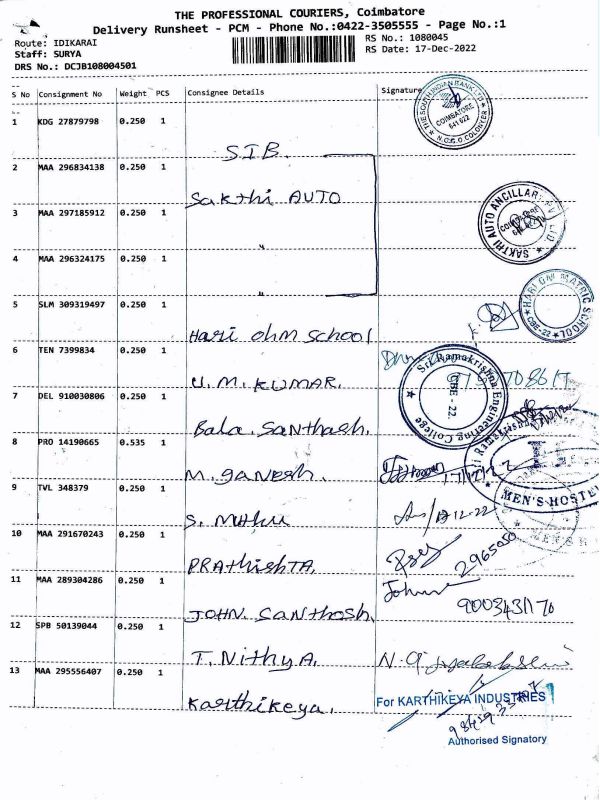 THE PROFESSIONAL COURIERS, Coimbatore
Delivery Runsheet - PCM - Phone No.:0422-3505555 - Page No.:1
Route: IDIKARAI
Staff: SURYA
DRS No.: DCJB108004501
RS No.: 1080045
RS Date: 17-Dec-2022
S No Consignment No Weight PCS Consignee Details Signature
1 KDG 27879798 0.250 1
S.I.B.
THE SOUTH INDIAN BANK LTD
COIMBATORE
641 022
N.G.G.O COLONY
2 MAA 296834138 0.250 1
Sakthi AUTO
3 MAA 297185912 0.250 1
"
SAKTHI AUTO ANCILLARY PVT LTD.
4 MAA 296324175 0.250 1
"
5 SLM 309319497 0.250 1
Hari ohm school
HARI OM MATRIC SCHOOL
CBE-22
6 TEN 7399834 0.250 1
U.M. KUMAR.
7 DEL 910030806 0.250 1
Bala. Santhosh.
Sri Ramakrishna Engineering College
CBE - 22.
8 PRO 14190665 0.535 1
M. Ganesh.
17/12/22
MEN'S HOSTEL
9 TVL 348379 0.250 1
S. Muthu
17-12-22
10 MAA 291670243 0.250 1
PRAthishTA.
2965050
11 MAA 289304286 0.250 1
JOHN. SANTHOSH.
John
9003431170
12 SPB 50139044 0.250 1
T. NithyA.
13 MAA 295556407 0.250 1
Karthikeya.
For KARTHIKEYA INDUSTRIES
Authorised Signatory